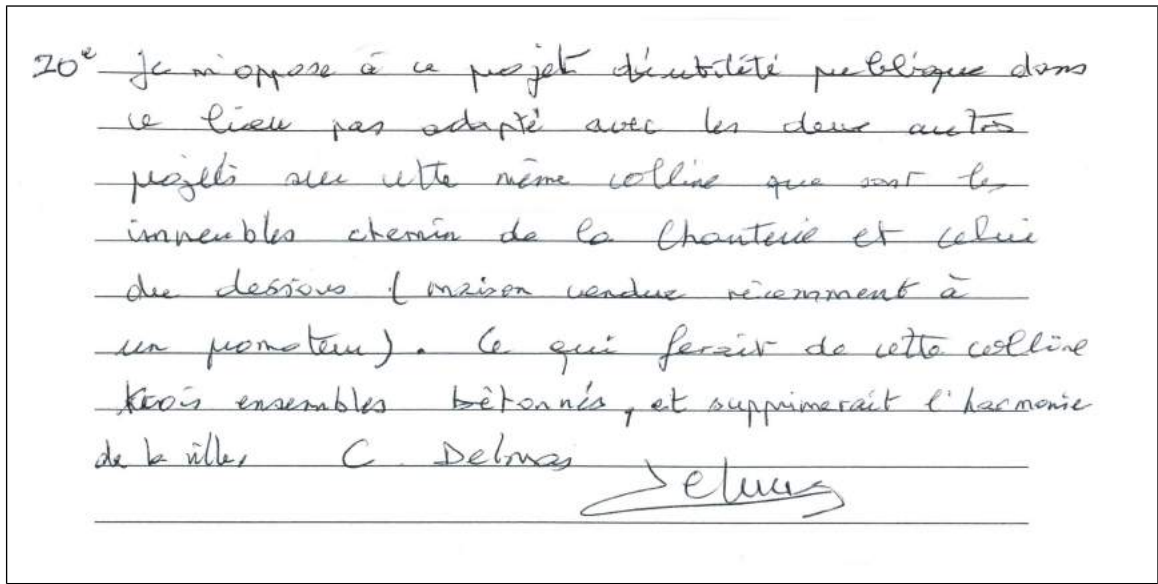 20e Je m'oppose à ce projet d'utilité publique dans
ce lieu pas adapté avec les deux autres
projets sur cette même colline que sont les
immeubles chemin de la Chanterie et celui
du dessous (maison vendue récemment à
un promoteur). Ce qui ferait de cette colline
trois ensembles bétonnés, et supprimerait l'harmonie
de la ville, C. Delmas
Delmas